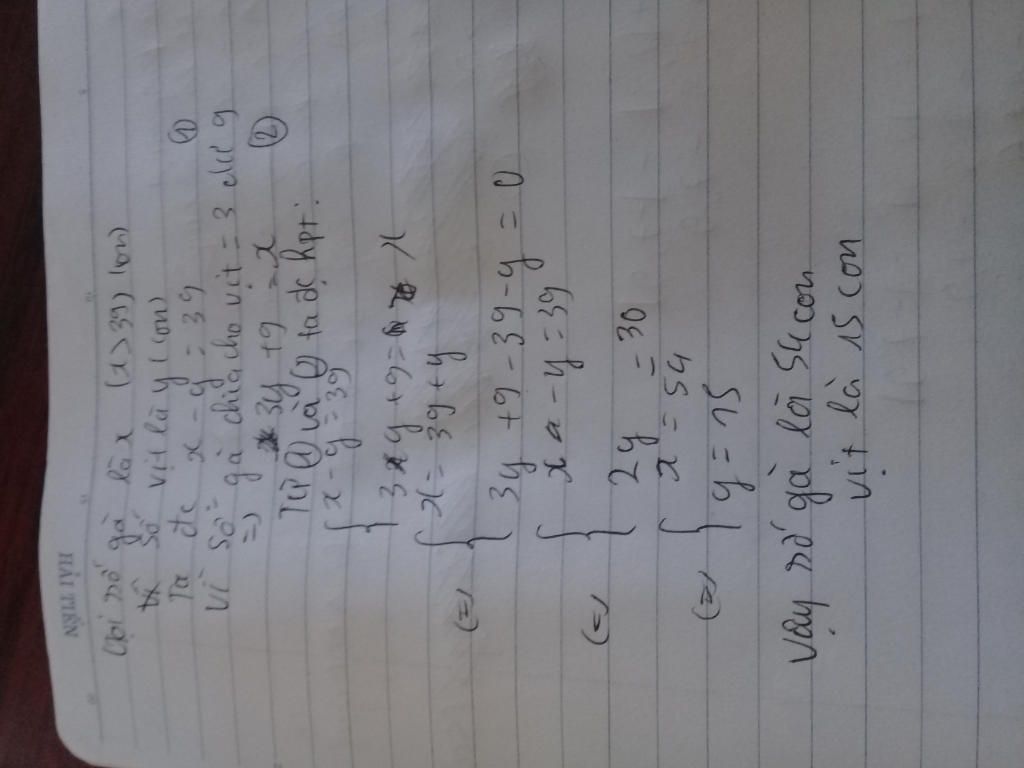 HẢI TIẾN
Gọi số gà là x (x>39) (con)
Số vịt là y (con)
Ta đc x - y = 39 (1)
Vì số gà chia cho vịt = 3 dư 9
=> 3y + 9 = x (2)
Từ (1) và (2) ta đc hpt:
{ x - y = 39
3y + 9 = x
(=) { x = 39 + y
3y + 9 - 39 - y = 0
(=) { x - y = 39
2y = 30
(=) { x = 54
y = 15
Vậy số gà là 54 con
vịt là 15 con